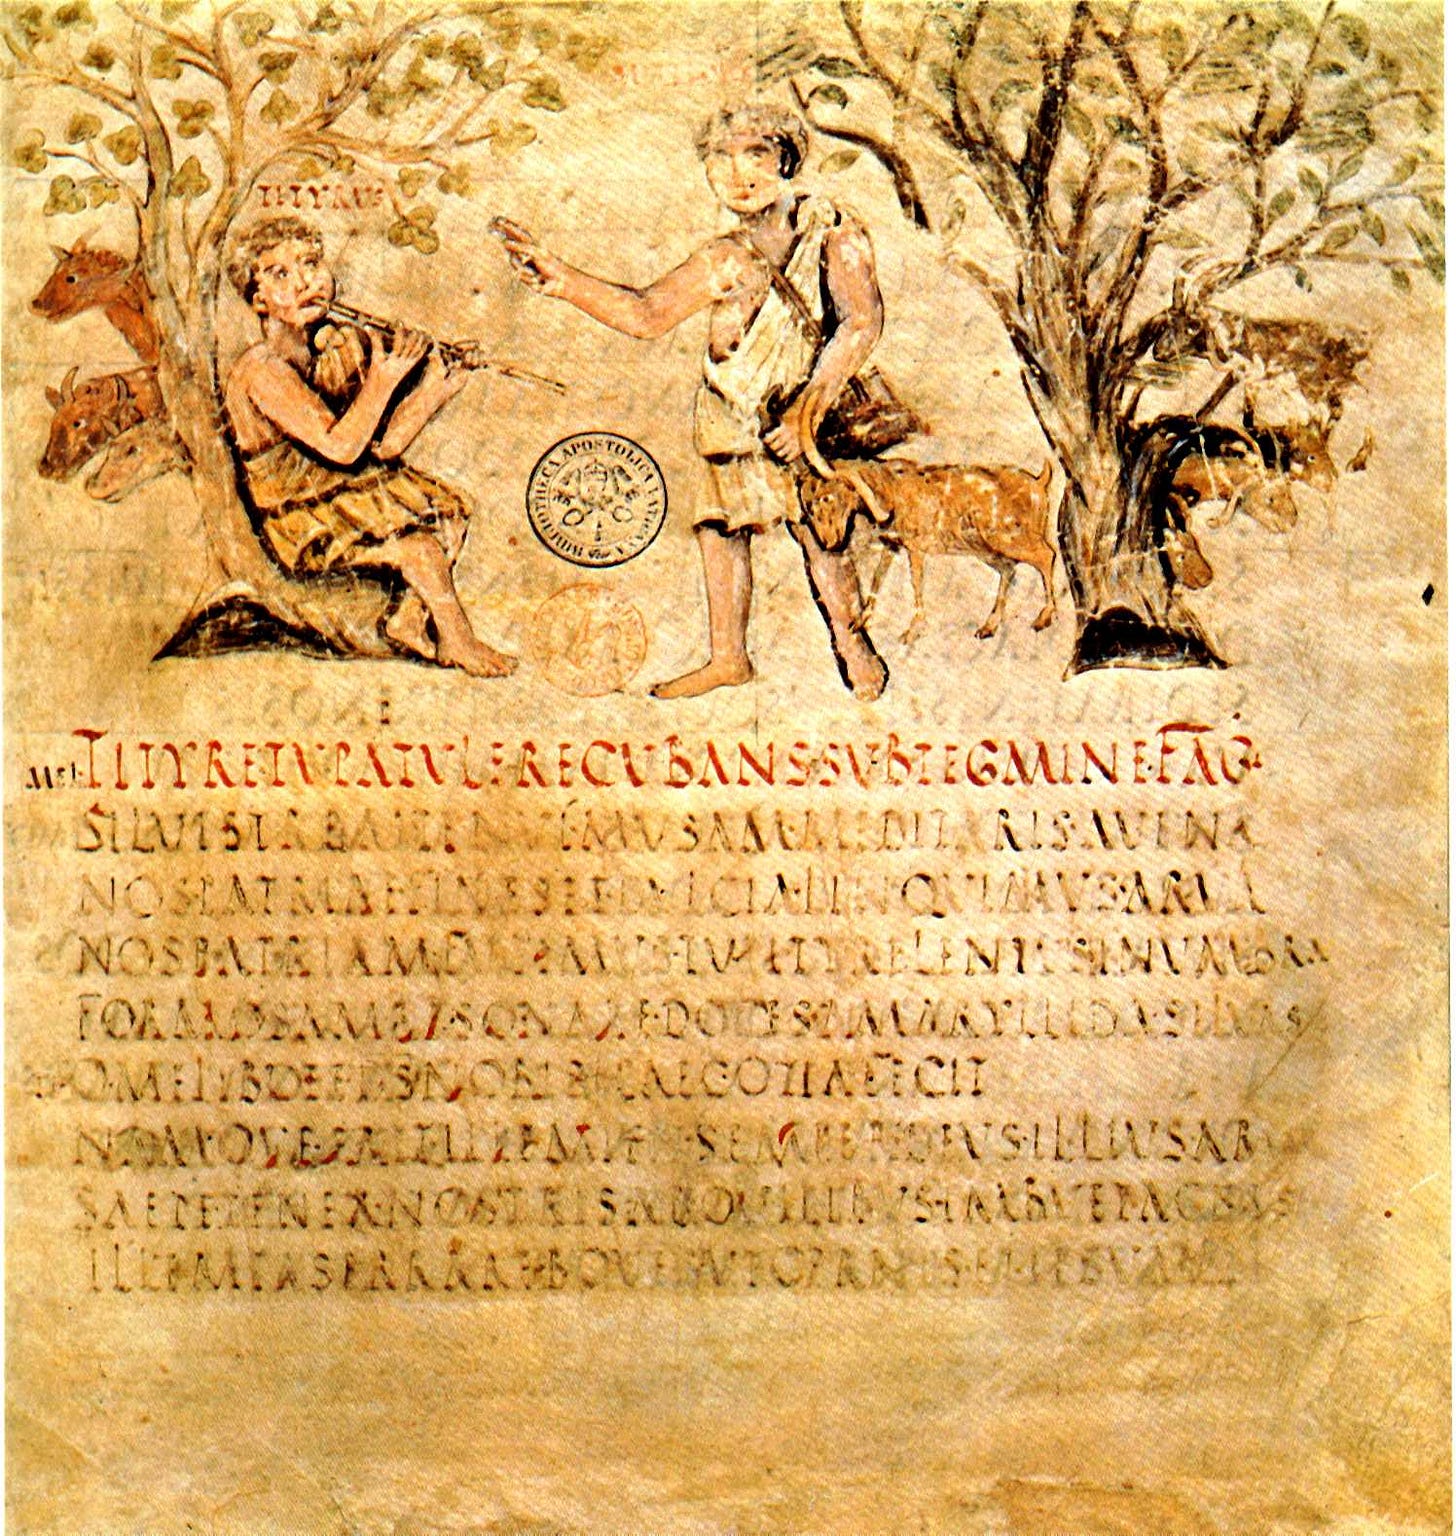 TITYRUS
BIBLIOTHECA APOSTOLICA VATICANA
MEL· TITYRE TV PATVLE RECVBANS SVB TEGMINE FAG·
SILVESTREM TENVEM MVSAM MEDITARIS AVENA
NOS PATRIAE FINES ET DVLCIA LINQVIMVS ARVA
NOS PATRIAM FVGIMVS TV TITYRE LENTVS IN VMBRA
FORMOSAM RESONARE DOCES AMARYLLIDA SILVAS
O MELIBOEE DEVS NOBIS HAEC OTIA FECIT
NAMQVE ERIT ILLE MIHI SEMPER DEVS ILLIVS AR
SAEPE TENER NOSTRIS AB OVILIBVS IMBVET AGNVS
ILLE MEAS ERRARE BOVES VT CERNIS ET IPSVM